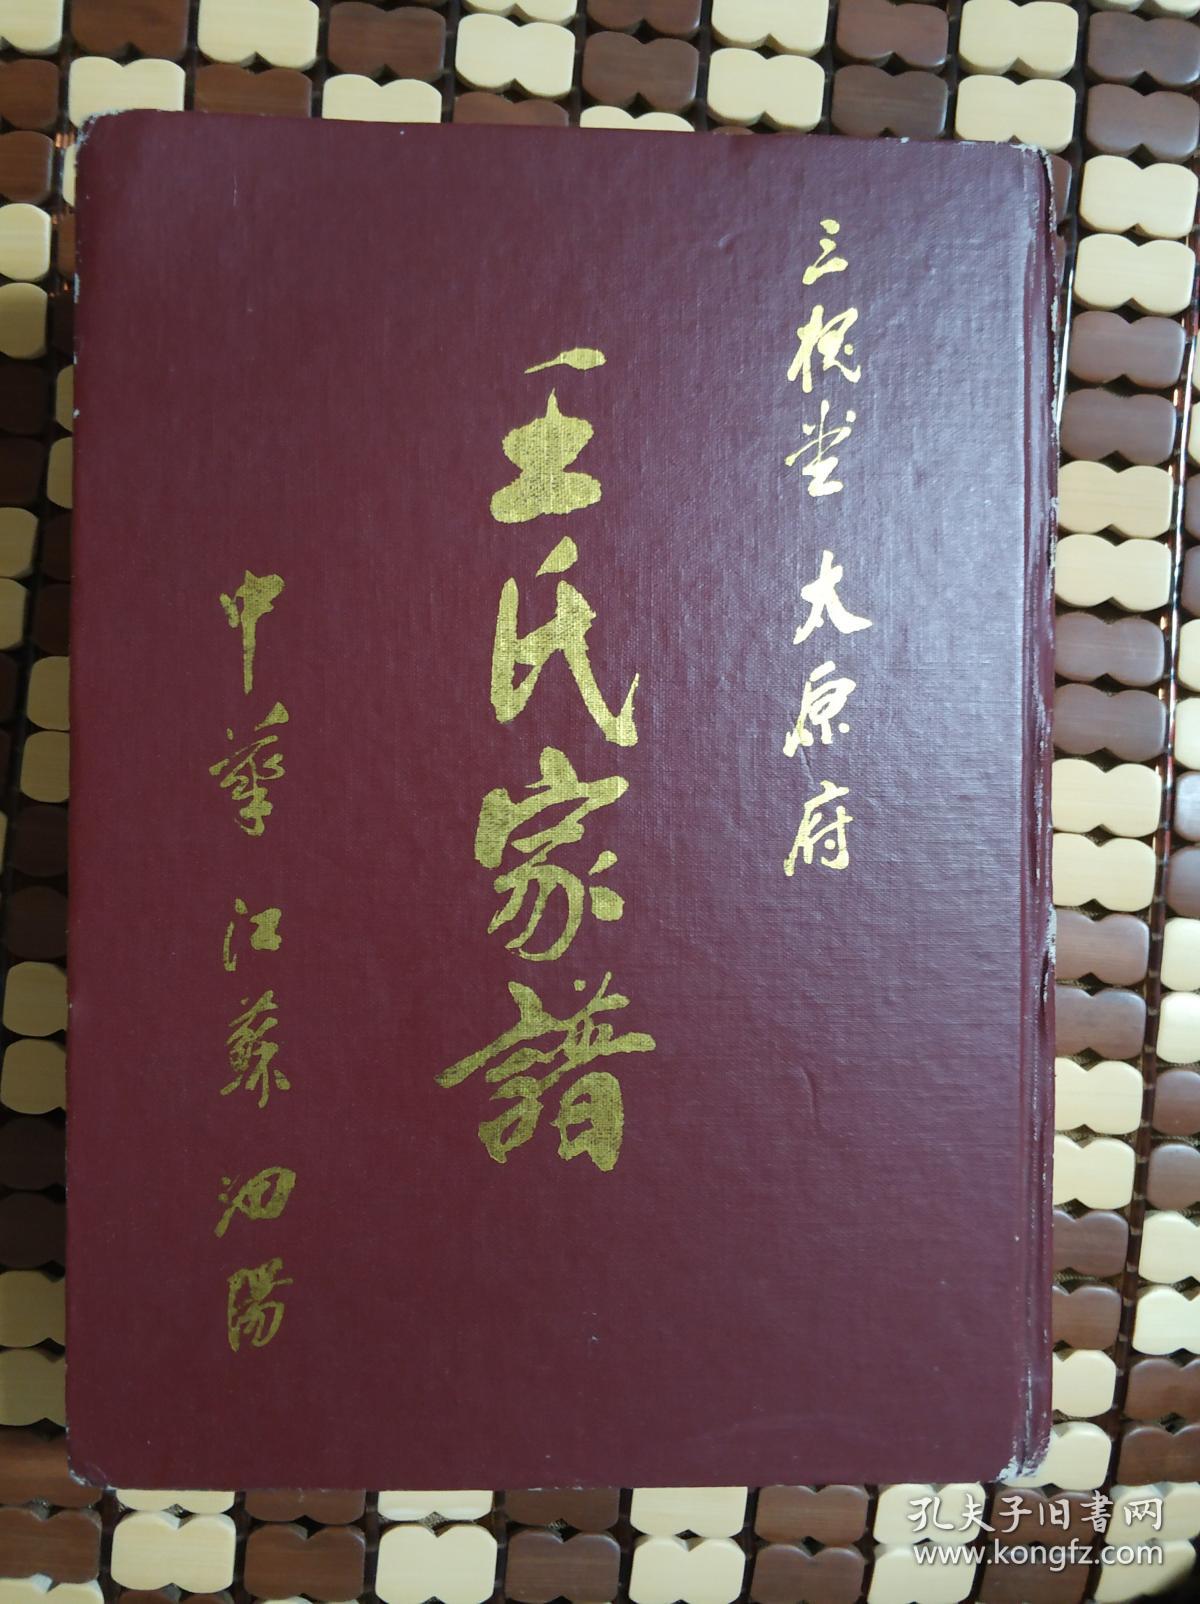 三槐堂 太原府
王氏家譜
中華 江蘇 泗陽
孔夫子旧書网
www.kongfz.com